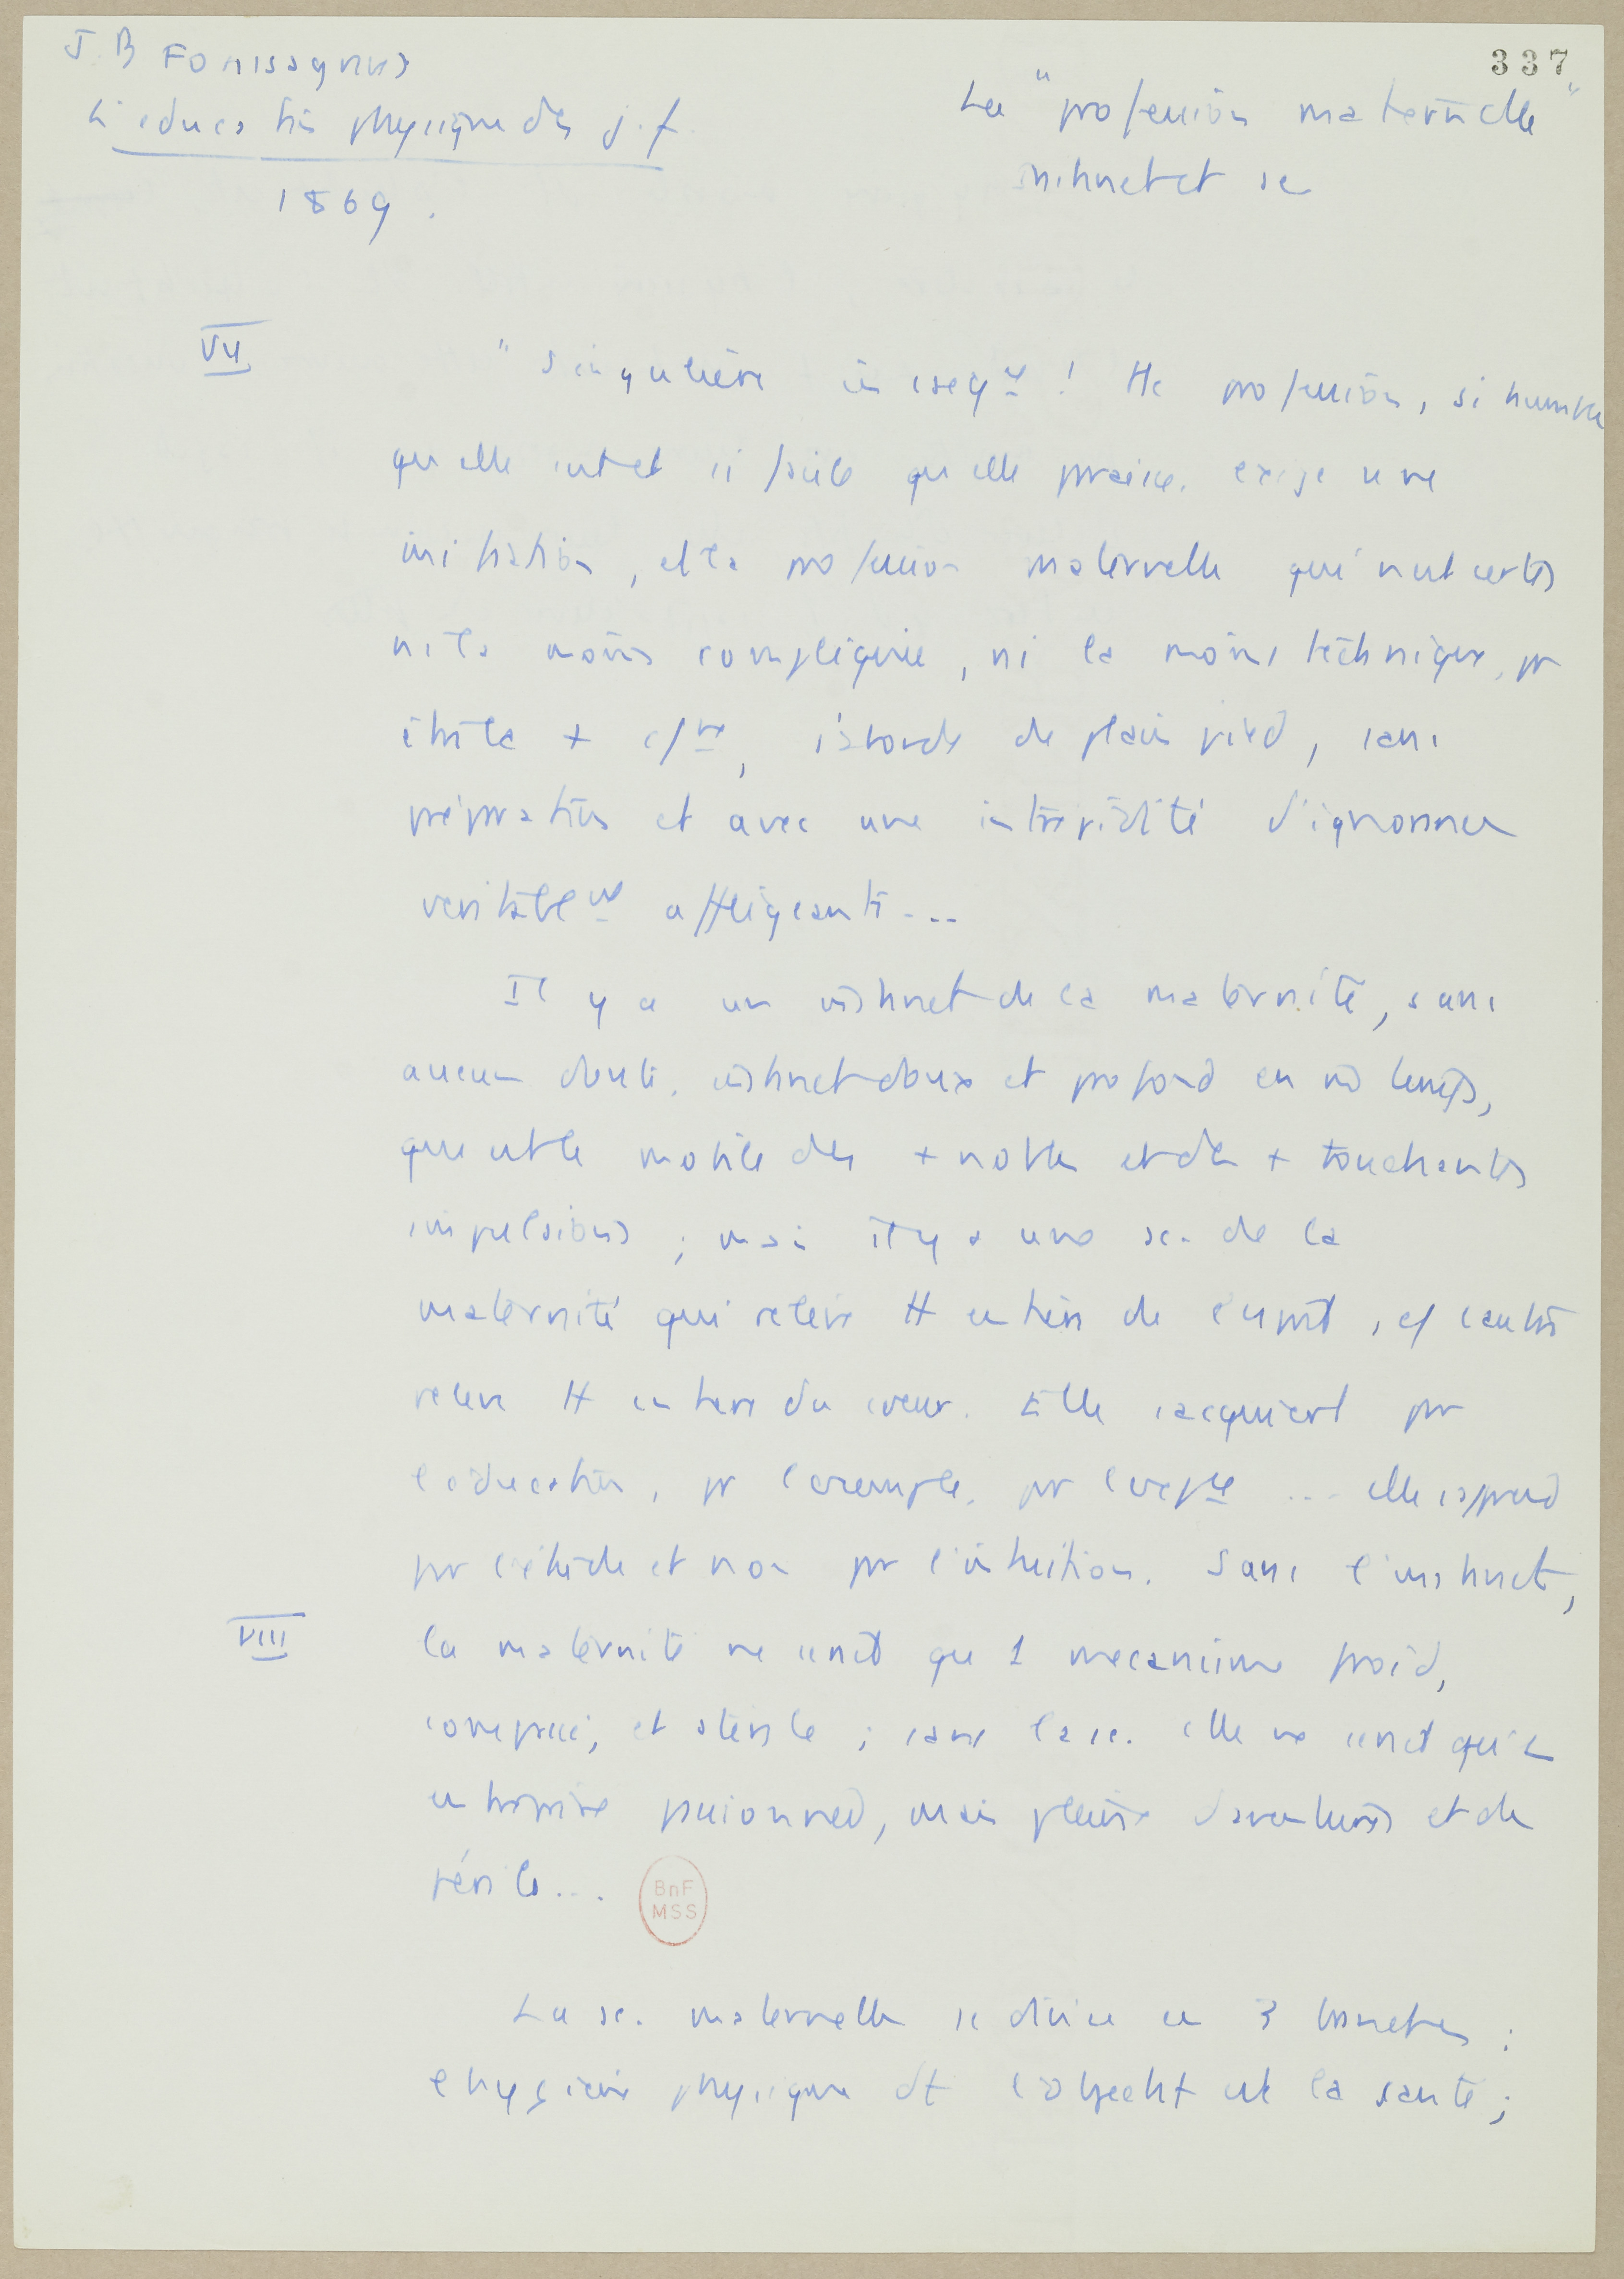 337
J. B Fonssagrives
L'education physique des j. f
1869.
La "profession maternelle"
instinct et sc
VII
" Singulière inconseq ce ! tte profession, si humble
qu elle soit et si facile qu elle paraisse, exige une
initiation, et la profession maternelle qui n'est certes
ni la moins compliquée, ni la moins technique, pr
être la +, s'aborde de plain pied, sans
préparation et avec une intrépidité d'ignorance
veritablt affligeante ...
Il y a un instinct de la maternité, sans
aucun doute, instinct doux et profond en m temps,
que est le mobile des + nobles et des + touchantes
impulsions ; mais il y a une sc. de la
maternité qui relève tt entière de l'esprit, cf l'autre
relève tt entière du coeur. Elle s'acquiert par
l'éducation, pr l'exemple, pr l'exp ce ... elle s'apprend
par l'étude et non par l'intuition. Sans l'instinct,
VIII
la maternité ne serait que 1 mécanisme froid,
compassé, et stérile ; sans la sc. elle ne serait qu'1
entreprise passionnée, mais pleine d'aventures et de
périls ...
BnF
MSS
La sc. maternelle se divise en 3 branches :
l'hygiène physique dt l'objectif est la santé ;